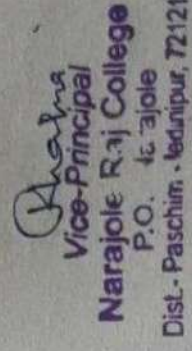 Vice-Principal
Narajole Raj College
P.O. ajole
Dist.- Paschim Medinipur, 72121